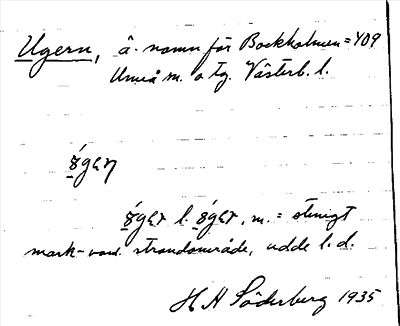 Ugern, å. namn för Bockholmen = 409
Umeå m. o tg. Västerb. l.
ǿgɐn
ǿgɐr l. ǿgɐr, m. = stenigt
mark- strandområde, udde l. d.
H A Söderberg 1935